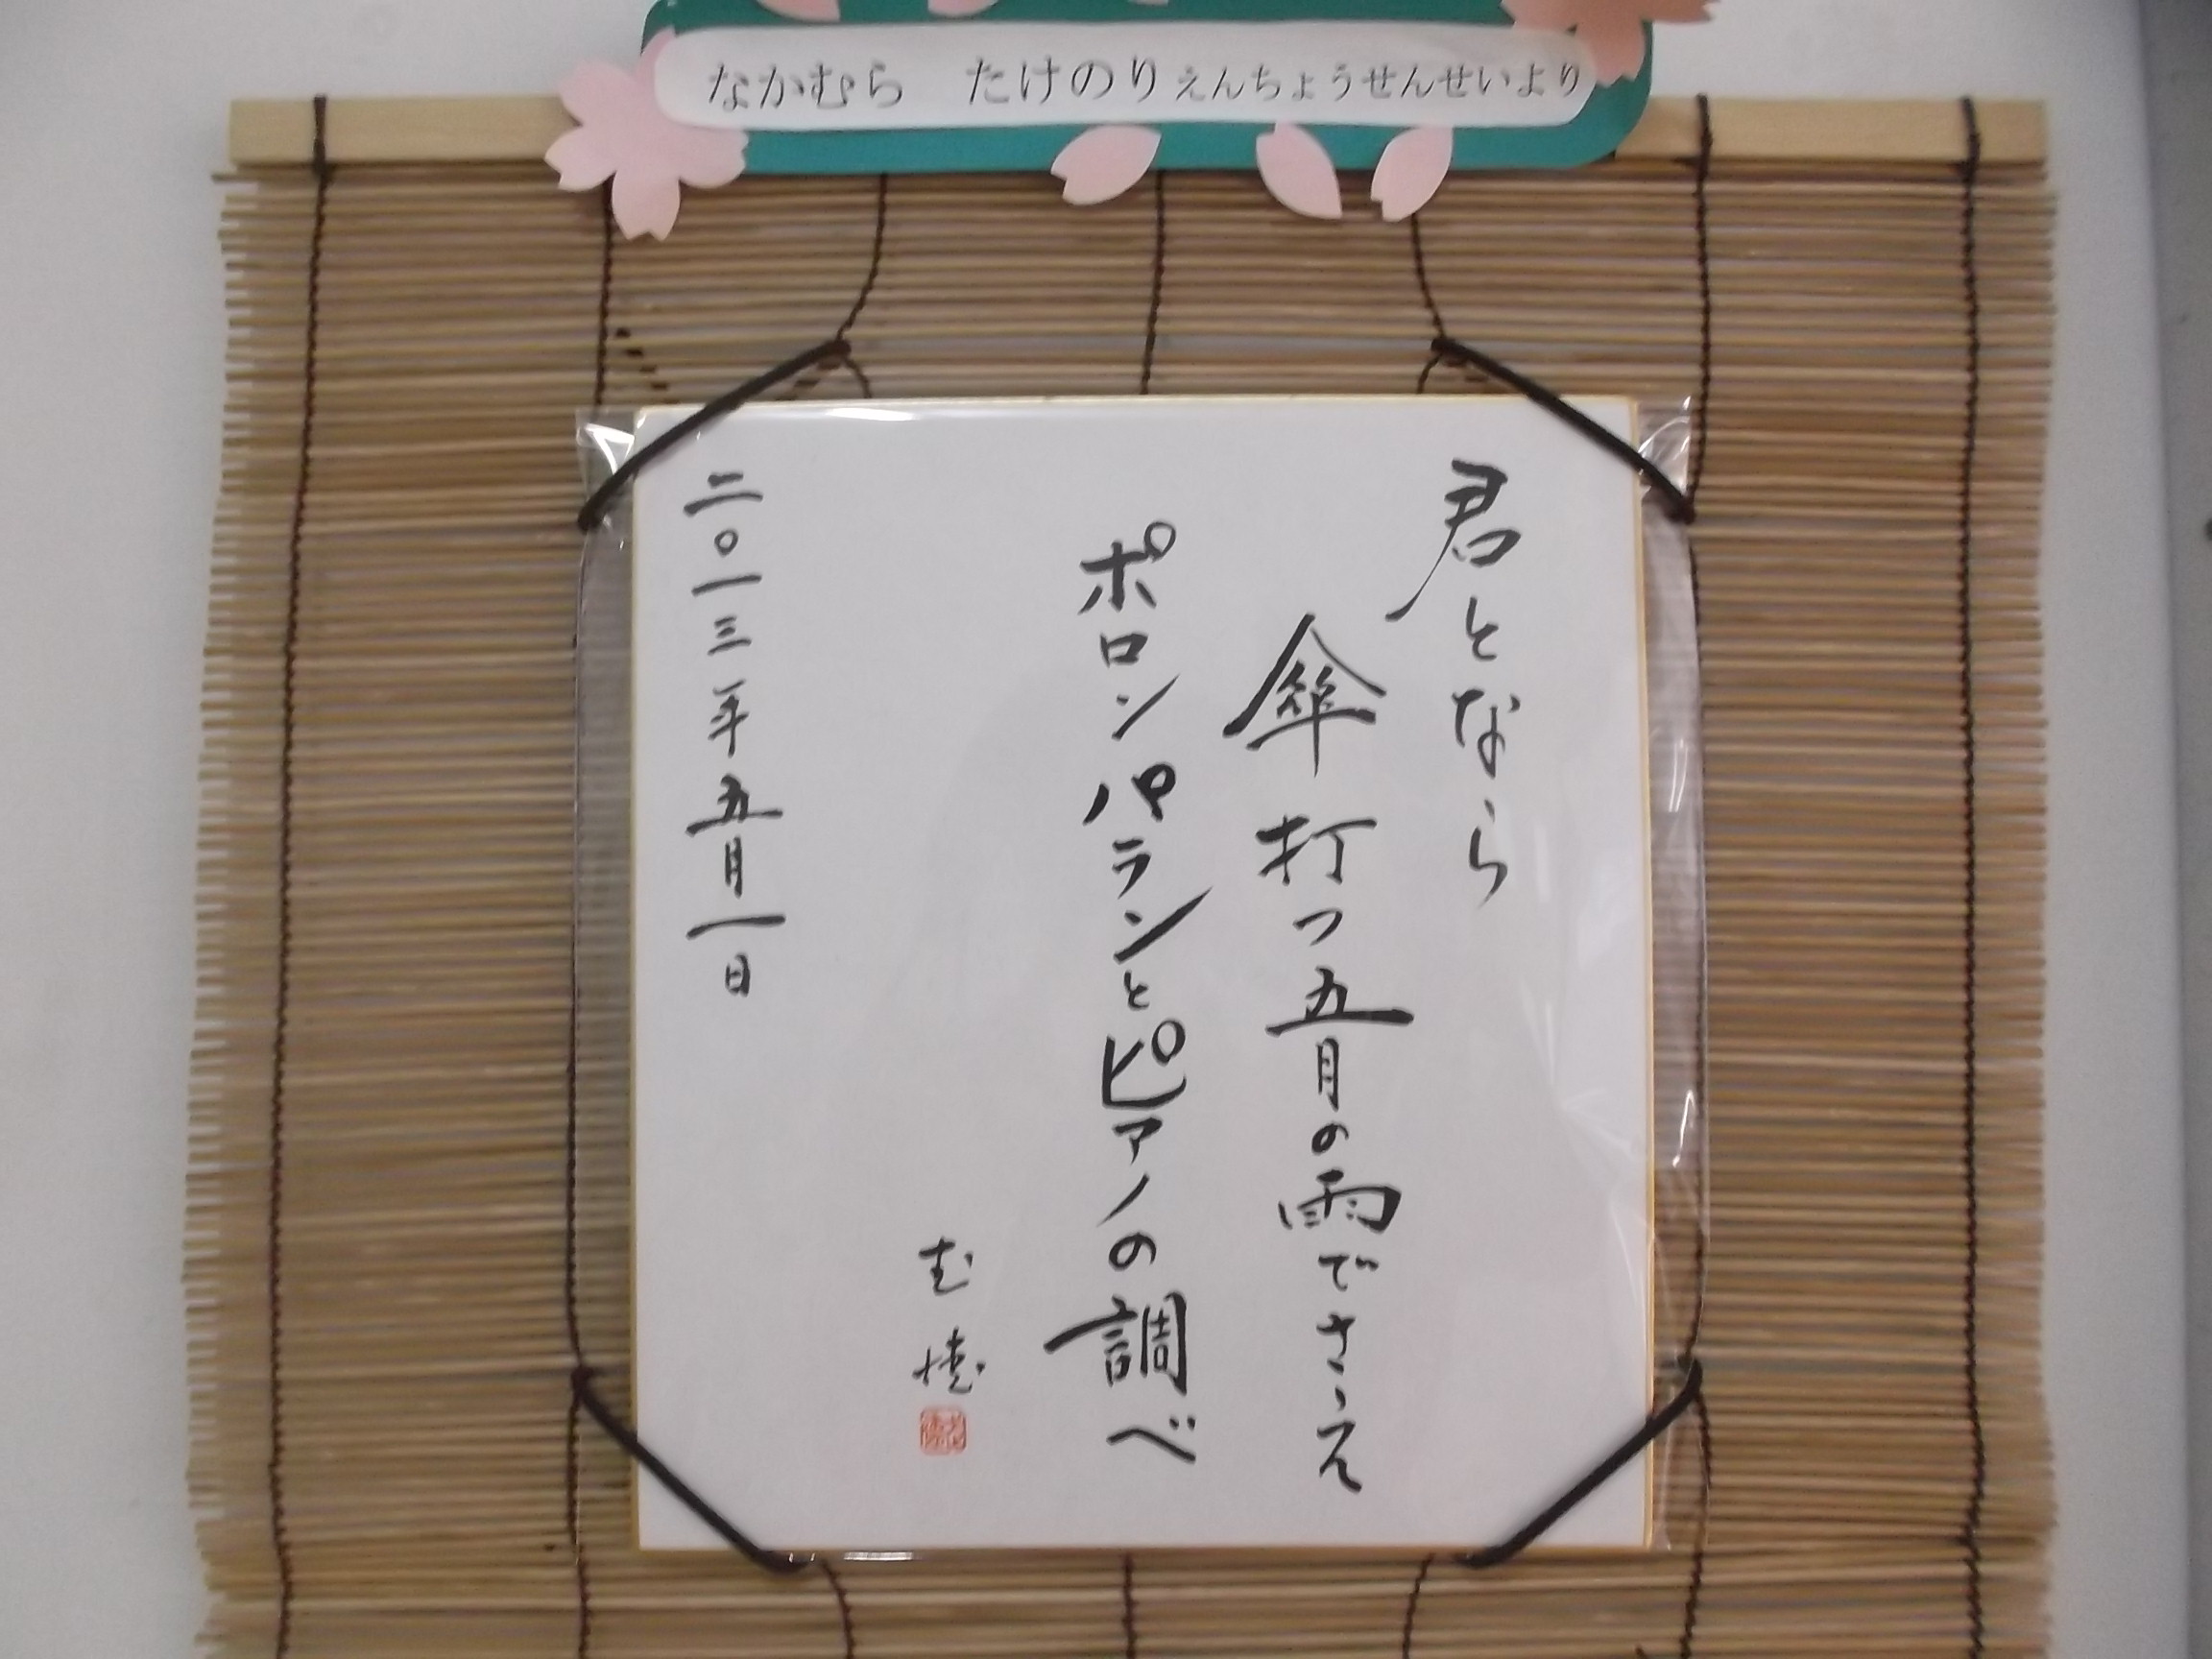 なかむら　たけのりえんちょうせんせいより
君となら
傘打つ五月の雨でさえ
ポロンパランとピアノの調べ
二〇一三年五月一日